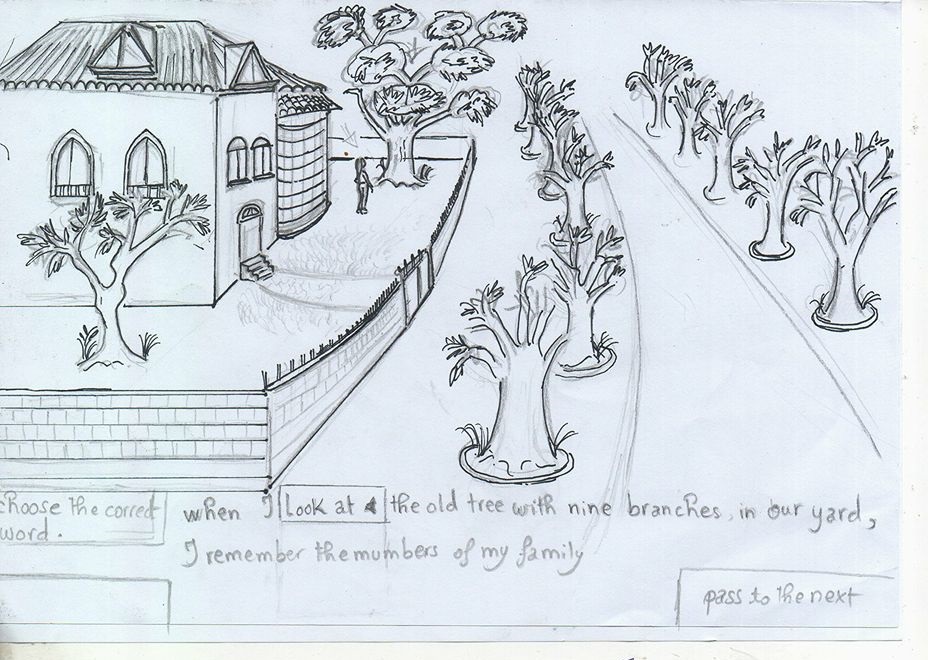 choose the correct
word.
when I Look at the old tree with nine branches, in our yard,
I remember the mumbers of my family
pass to the next